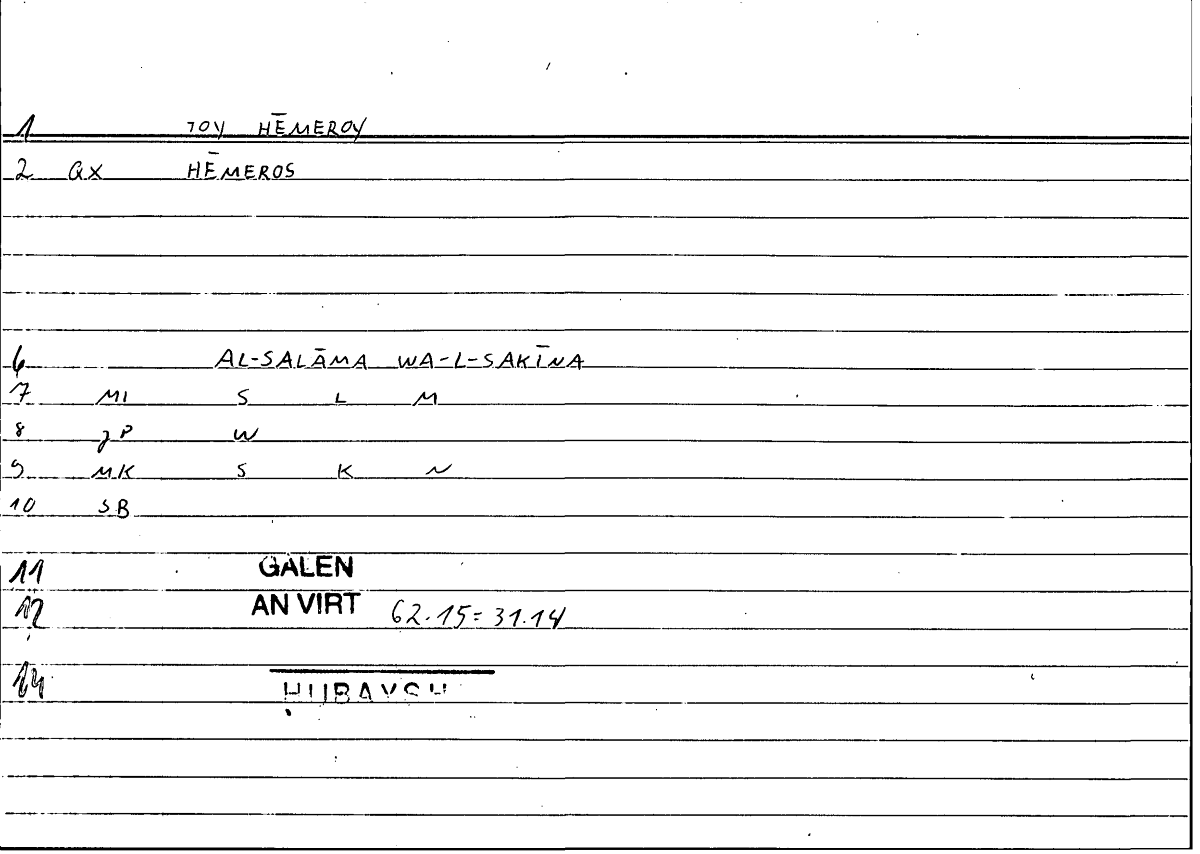 1 TOY HĒMEROY
2 QX HĒMEROS
6 AL-SALĀMA WA-L-SAKĪNA
7 MI S L M
8 JP W
9 MK S K N
10 SB
11 GALEN
12 AN VIRT 62.15=31.14
14 ḤUBAYSH